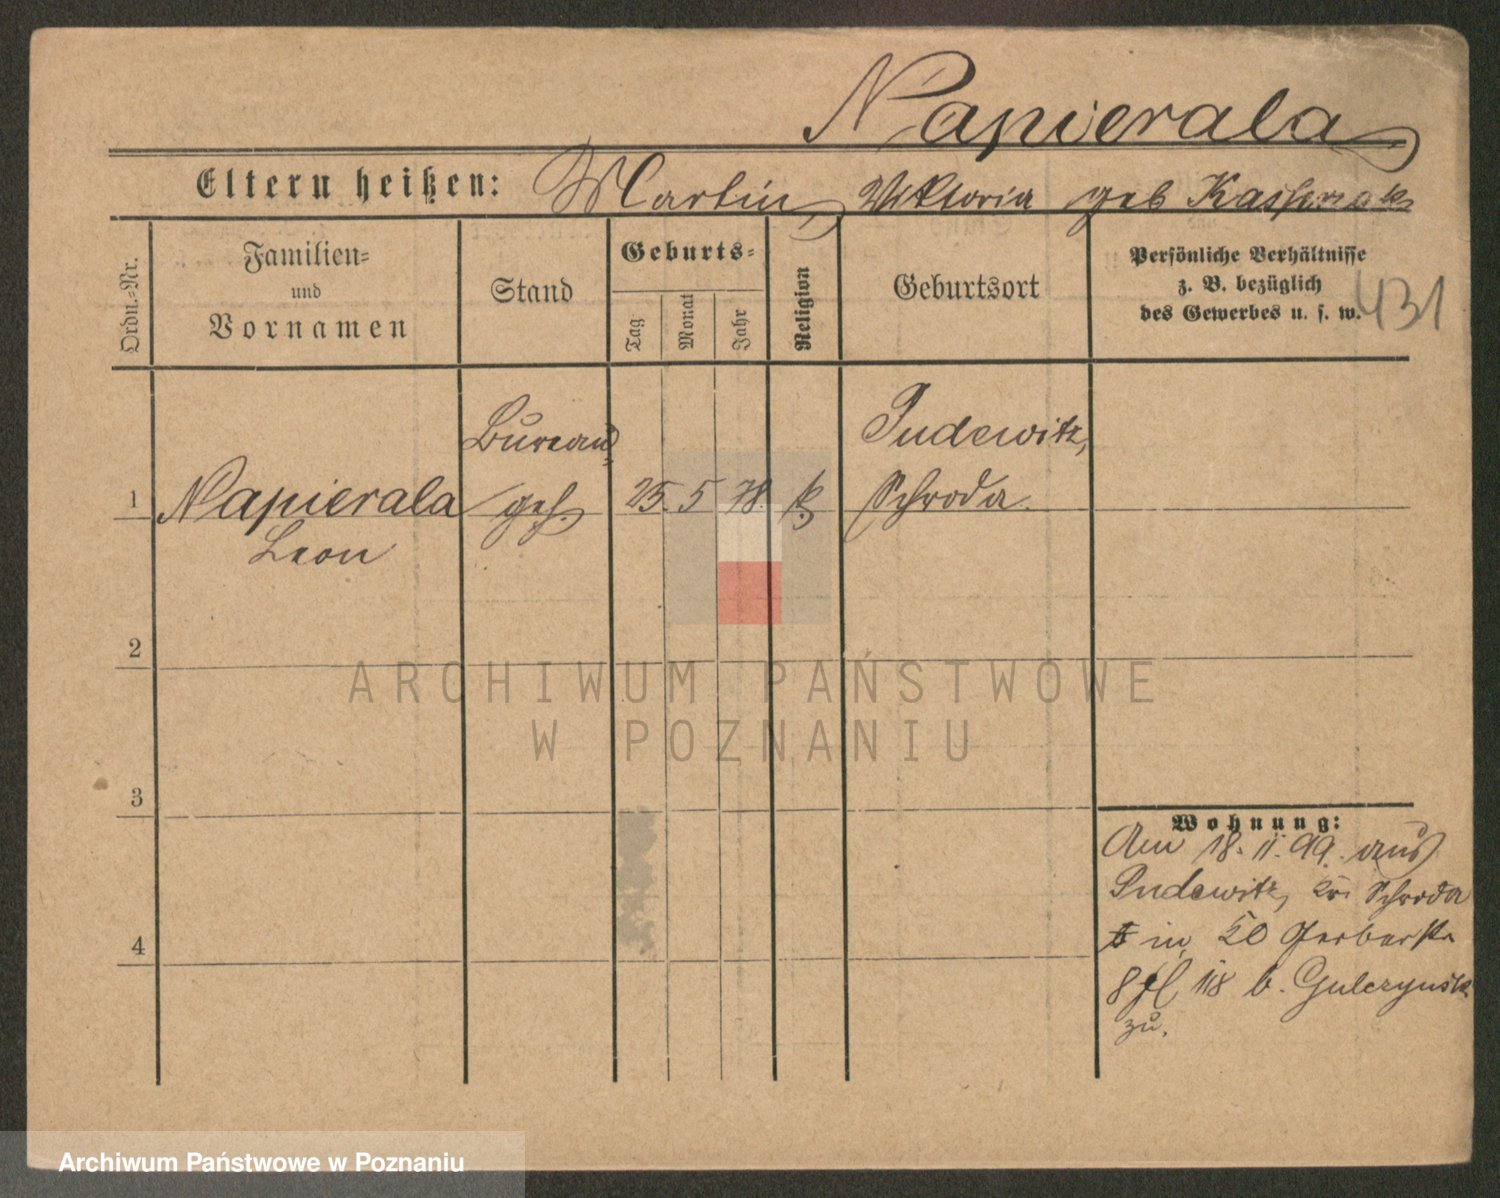 Napierala
Eltern heißen: Martin, Viktoria geb Kasprzak
Ordn.-Nr.
Familien-
und
Vornamen
Stand
Geburts-
Tag
Monat
Jahr
Religion
Geburtsort
Persönliche Verhältnisse
z. B. bezüglich
des Gewerbes u. s. w.
431
1
Napierala
Leon
Bureau
geh.
25. 5 78.
k.
Pudewitz,
Schroda
2
3
4
Wohnung:
Am 18. 11. 99. aus
Pudewitz, Kr. Schroda
in 50 Gerberstr
8 118 b. Gulczynski
zu.
ARCHIWUM PAŃSTWOWE
W POZNANIU
Archiwum Państwowe w Poznaniu